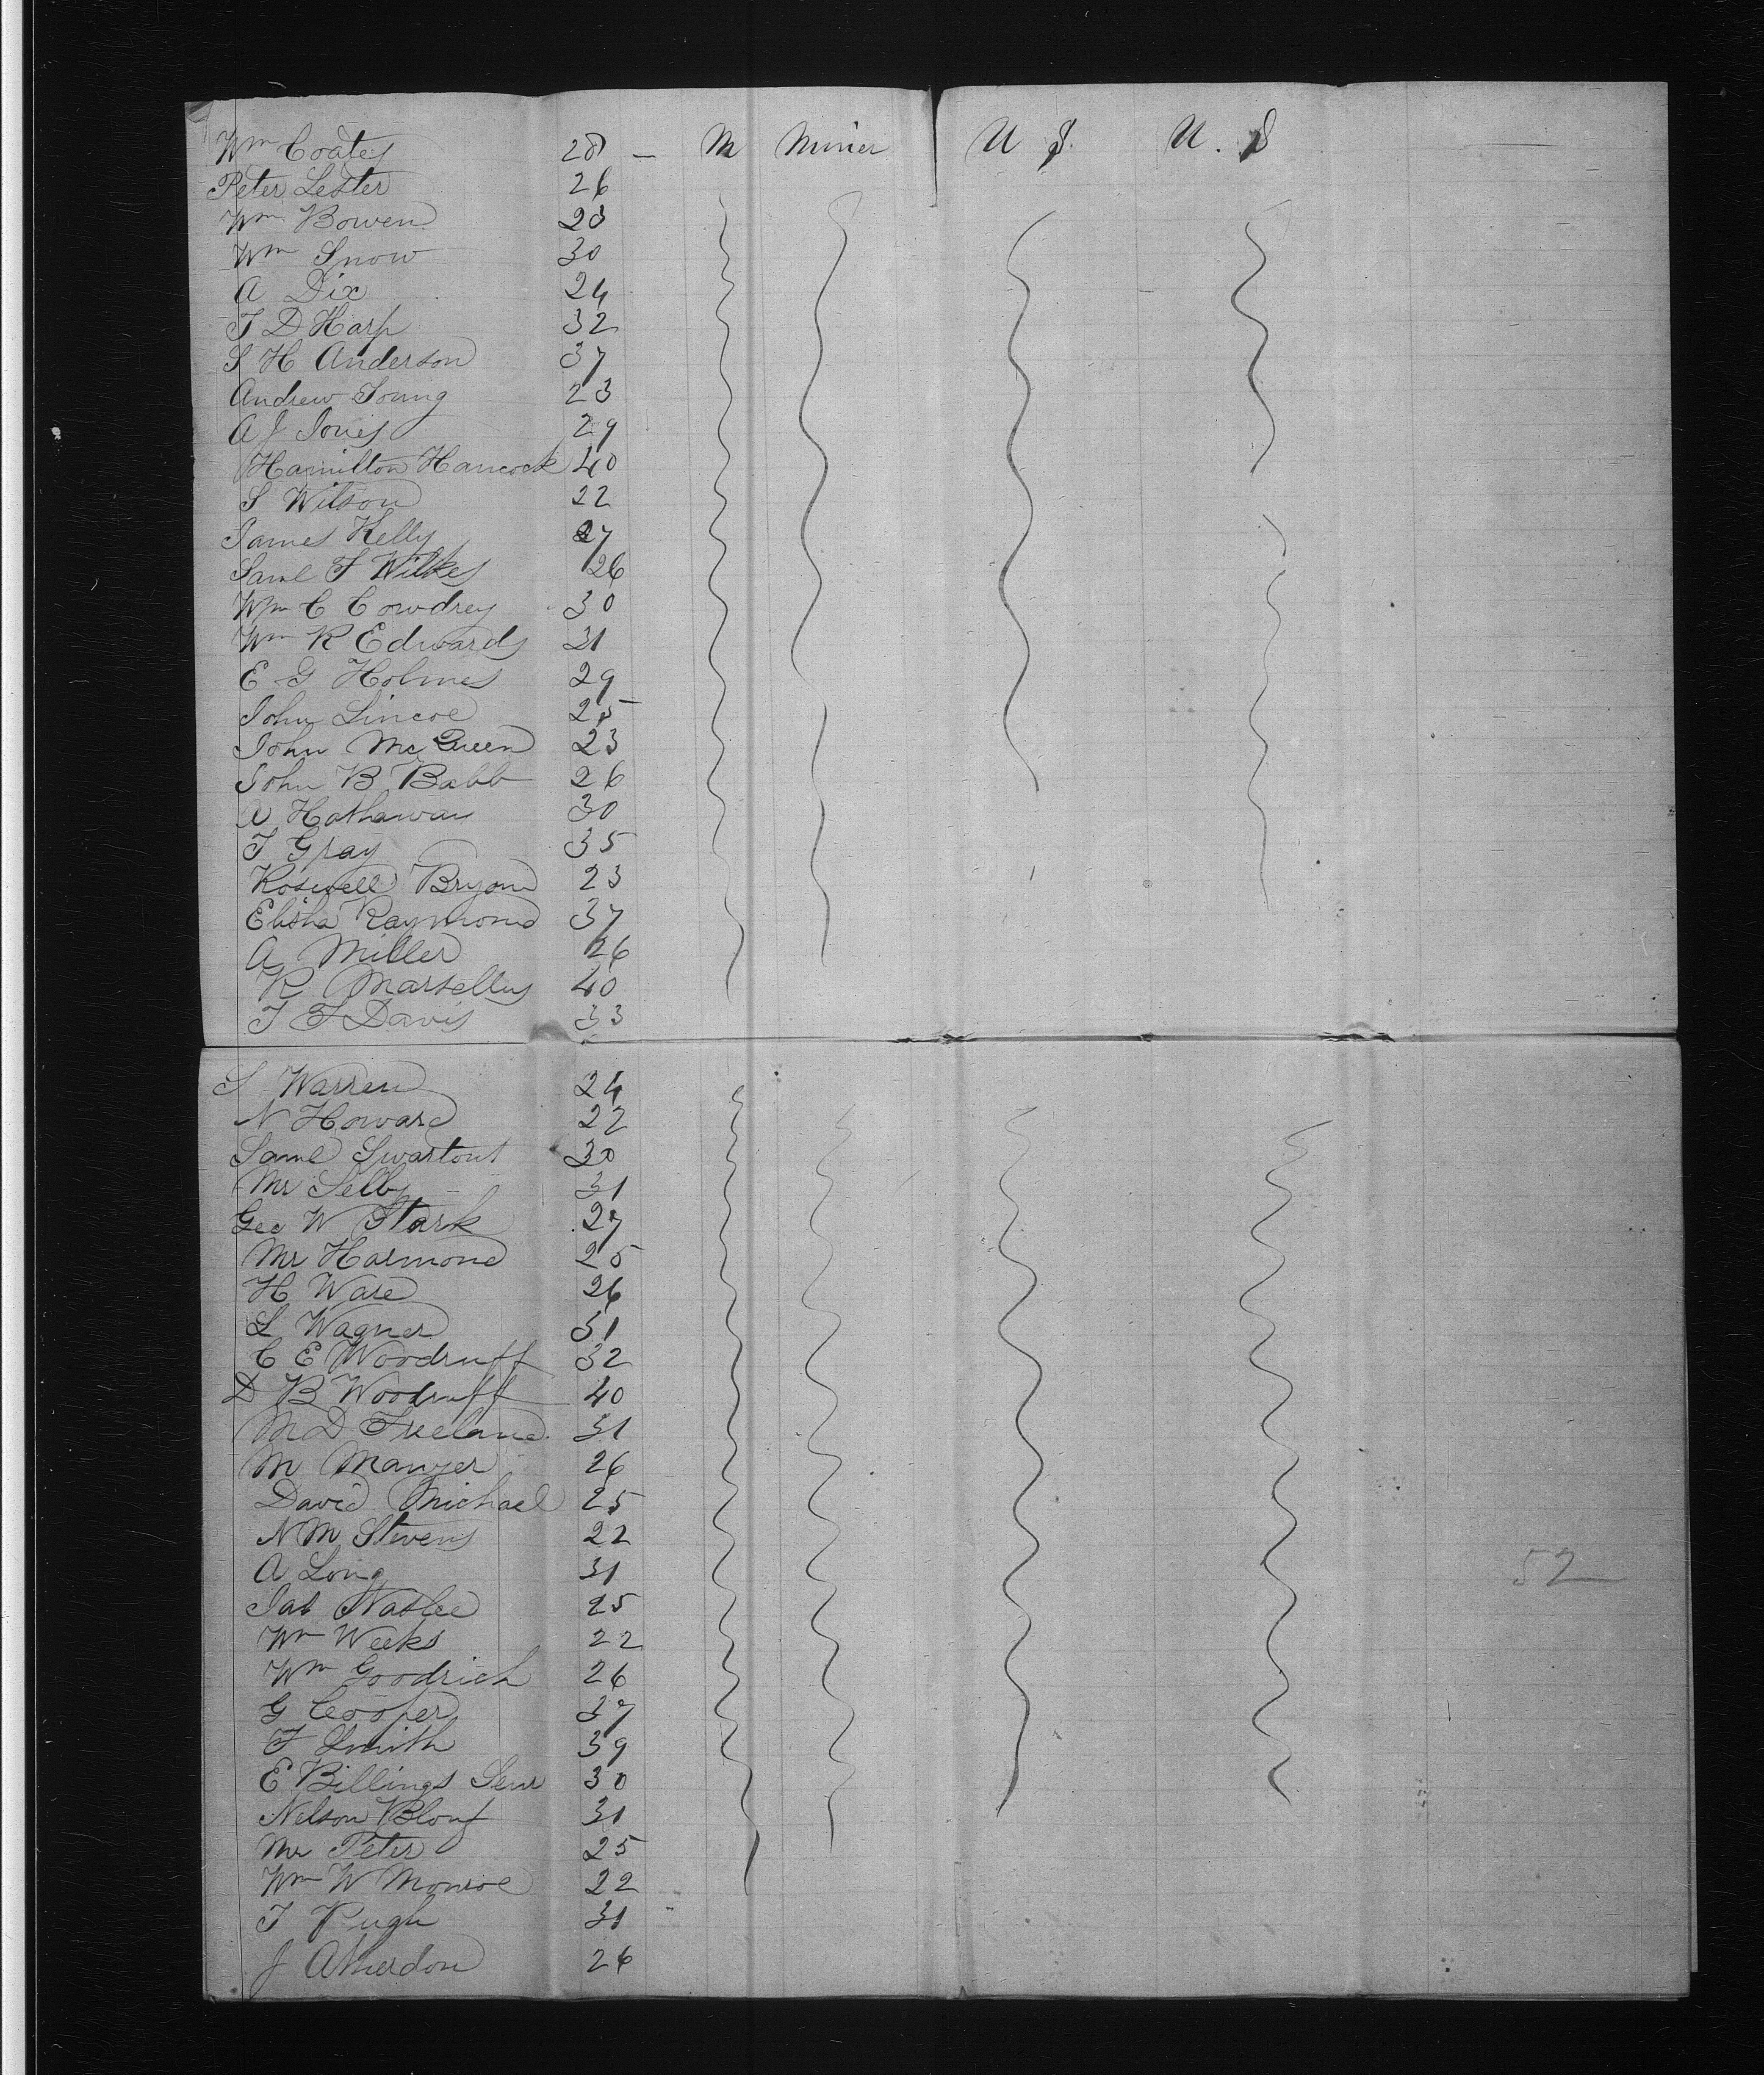 Wm Coates 28 — M Miner U S. U. S
Peter Lester 26
Wm Bowen 23
Wm Snow 30
A Dix 24
T D Harp 32
S H Anderson 37
Andrew Young 23
A J Jones 29
Hamilton Hancock 40
S Wilson 22
James Kelly 27
Saml T Wilkes 26
Wm C Cowdrey 30
Wm R Edwards 31
E G Holmes 29
John Lincoe 25
John McQueen 23
John B Babb 26
A Hathaway 30
T Gray 35
Roswell Bryom 23
Elisha Raymond 37
A Miller 26
R Marsellus 40
T F Davis 33
S Warren 24
N Howard 22
Saml Swartout 30
Mr Selby 31
Geo W Stark 27
Mr Harmond 25
H Ware 26
L Wagner 31
C E Woodruff 32
D B Woodruff 40
M D Freeland 31
M Manyer 26
David Michael 25
N M Stevens 22
A Long 31
Jas Naslee 25
Wm Weeks 22
Wm Goodrich 26
G Cooper 37
F Smith 39
E Billings Senr 30
Nelson Blout 31
Mr Peter 25
Wm W Monroe 22
T Pugh 31
J Atherdon 26
52